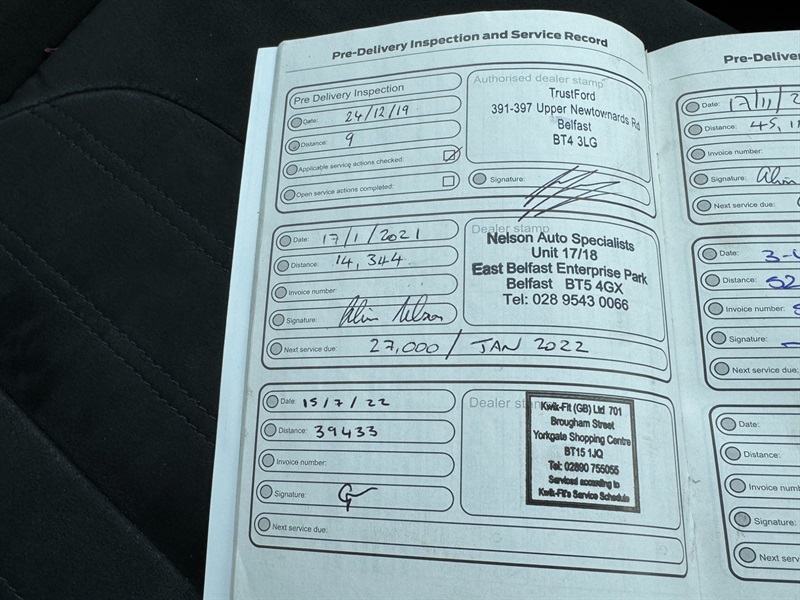 Pre-Delivery Inspection and Service Record
Pre Delivery Inspection
Date: 24/12/19
Distance: 9
Applicable service actions checked:
Open service actions completed:
Authorised dealer stamp
TrustFord
391-397 Upper Newtownards Rd
Belfast
BT4 3LG
Signature:
Date: 17/1/2021
Distance: 14,344
Invoice number:
Signature:
Next service due: 27,000 / JAN 2022
Dealer stamp
Nelson Auto Specialists
Unit 17/18
East Belfast Enterprise Park
Belfast BT5 4GX
Tel: 028 9543 0066
Date: 15/7/22
Distance: 39433
Invoice number:
Signature:
Next service due:
Dealer
Kwik-Fit (GB) Ltd 701
Brougham Street
Yorkgate Shopping Centre
BT15 1JQ
Tel: 02890 755055
Serviced according to
Kwik-Fit's Service Schedule
Date: 17/11/2
Distance: 45,
Invoice number:
Signature:
Next service due:
Date:
Distance:
Invoice number:
Signature:
Next service due:
Date:
Distance:
Signature: